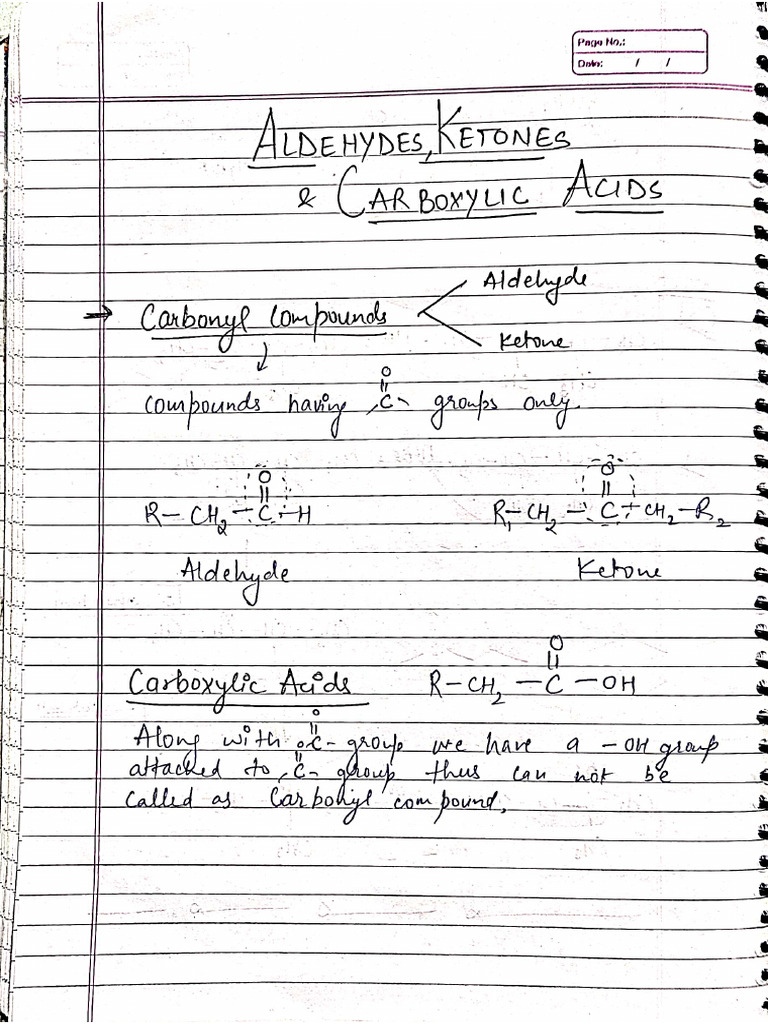 Page No.:
Date: / /
ALDEHYDES, KETONES
& CARBOXYLIC ACIDS
→ Carbonyl Compounds
Aldehyde
Ketone
↓
O
||
compounds having -C- groups only.
O
||
R-CH₂-C-H
Aldehyde
O
||
R₁-CH₂-C-CH₂-R₂
Ketone
Carboxylic Acids
O
||
R-CH₂-C-OH
O
||
Along with -C- group we have a -OH group
O
||
attached to -C- group thus can not be
called as Carbonyl compound.